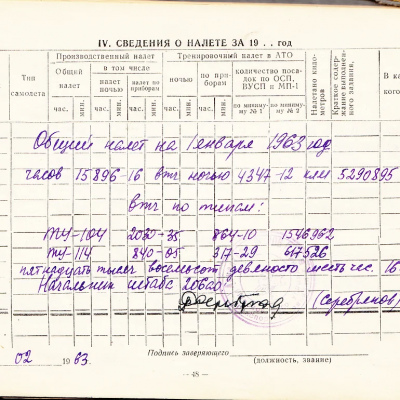 IV. СВЕДЕНИЯ О НАЛЕТЕ ЗА 19 . . год
Тип самолета
Производственный налет
Общий налет
в том числе
налет ночью
налет по приборам
Тренировочный налет в АТО
ночью
по приборам
количество посадок по ОСП, ВУСП и МП-I
по минимуму № 1
по минимуму № 2
Налетано километров
Краткое содержание выполненного задания,
В ка
кого
час. мин. час. мин. час. мин. час. мин. час. мин.
Общий налет на 1 января 1963 год
часов 15896-16 втч ночью 4347-12 клм 5290895
втч по типам:
ТУ-104 2020-35 864-10 1546962
ТУ-114 840-05 317-29 617526
пятнадцать тысяч восемьсот девяносто шесть час. 16
Начальник штаба 206ао:
(Серебряков)
02 1963.
Подпись заверяющего
(должность, звание)
— 48 —